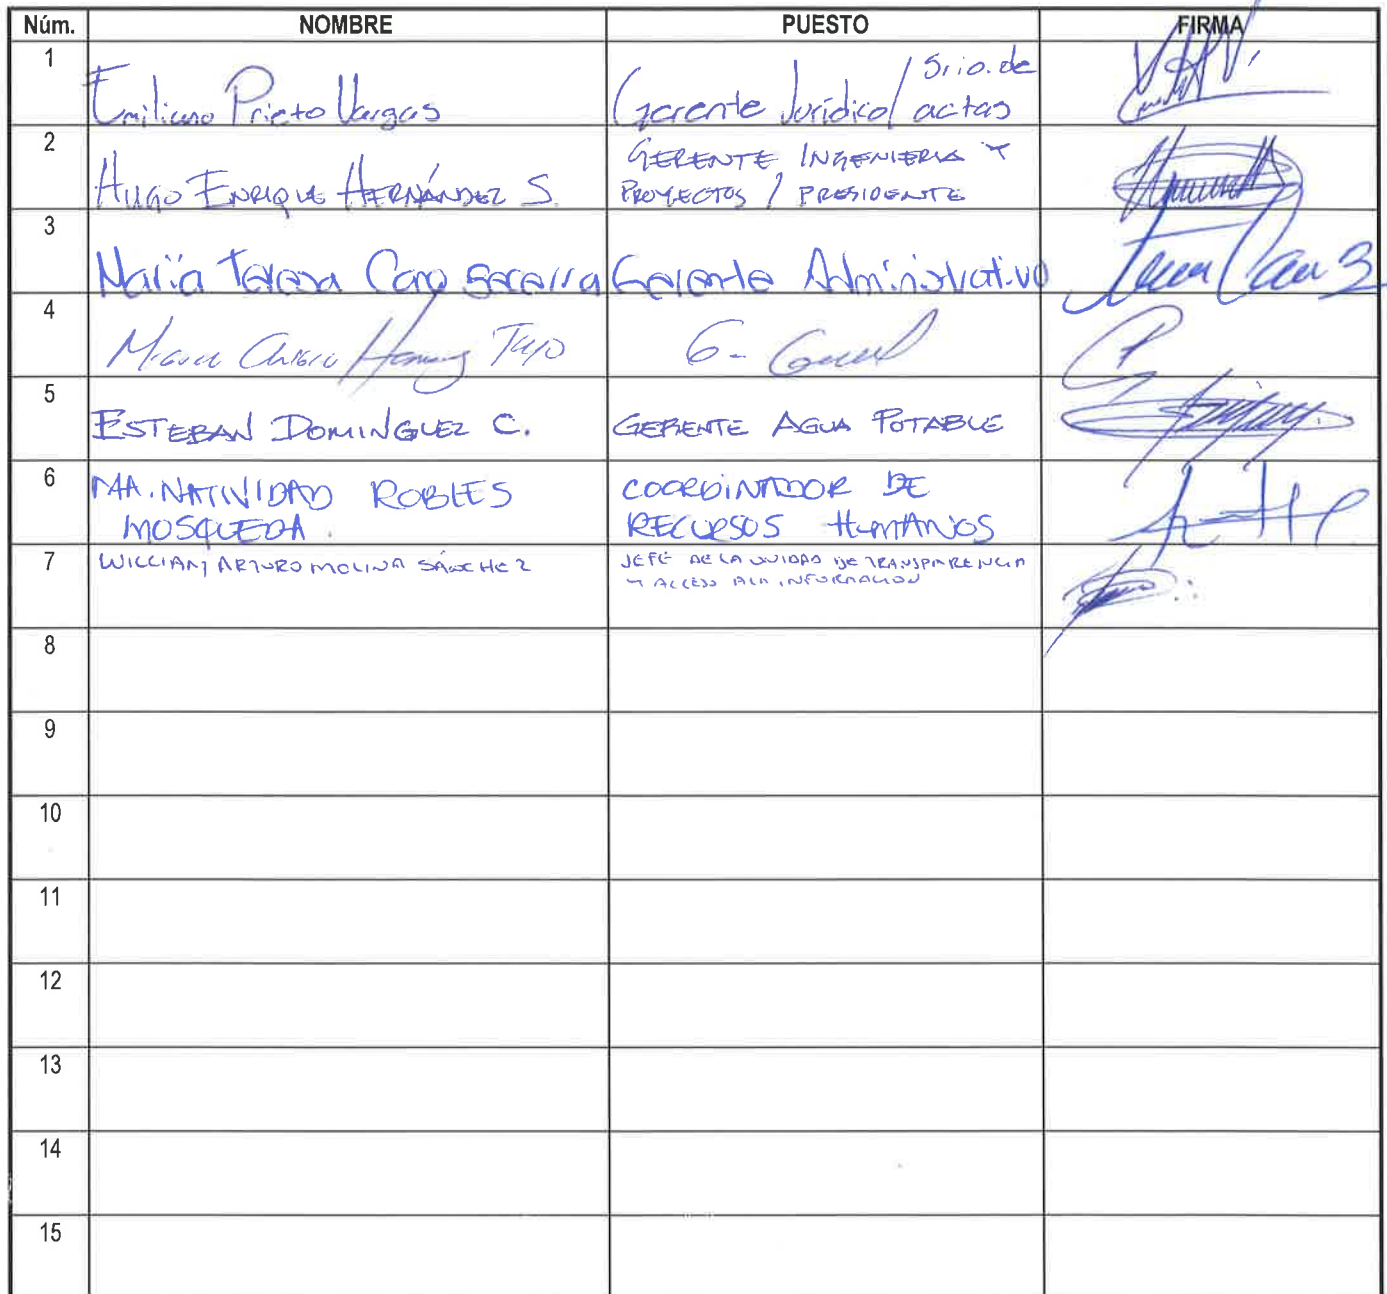 Núm. NOMBRE PUESTO FIRMA
1 Emiliano Prieto Vargas Gerente Jurídico/ Srio. de actas
2 HUGO ENRIQUE HERNÁNDEZ S. GERENTE INGENIERIA Y
PROYECTOS / PRESIDENTE
3 María Teresa Caro Gerente Administrativo
4 G.
5 ESTEBAN DOMINGUEZ C. GERENTE AGUA POTABLE
6 MA. NATIVIDAD ROBLES
MOSQUEDA COORDINADOR DE
RECURSOS HUMANOS
7 WILLIAM ARTURO MOLINA SÁNCHEZ JEFE DE LA UNIDAD DE TRANSPARENCIA
Y ACCESO A LA INFORMACION
8
9
10
11
12
13
14
15